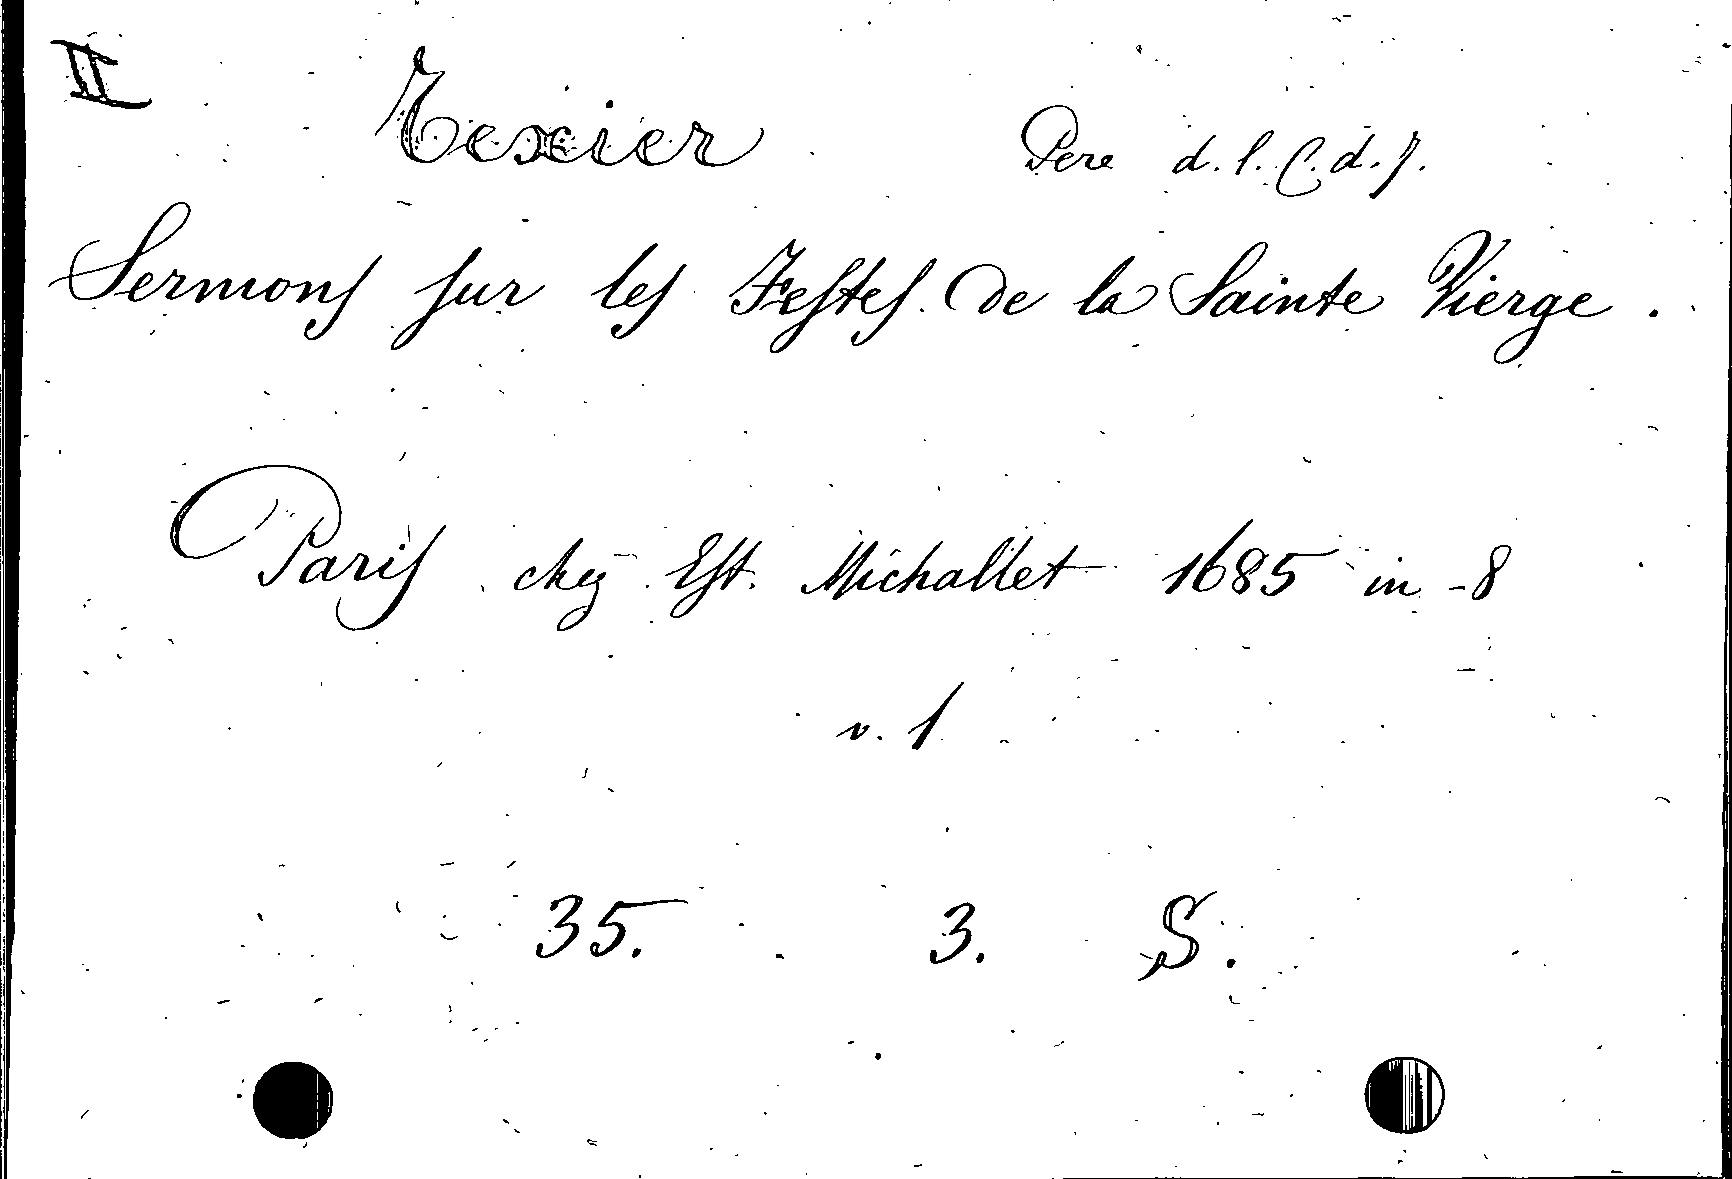 II Texier Pere d. l. C. d. J.
Sermons sur les Festes de la Sainte Vierge.
Paris chez Est. Michallet 1685 in-8
v. 1
35. 3. S.